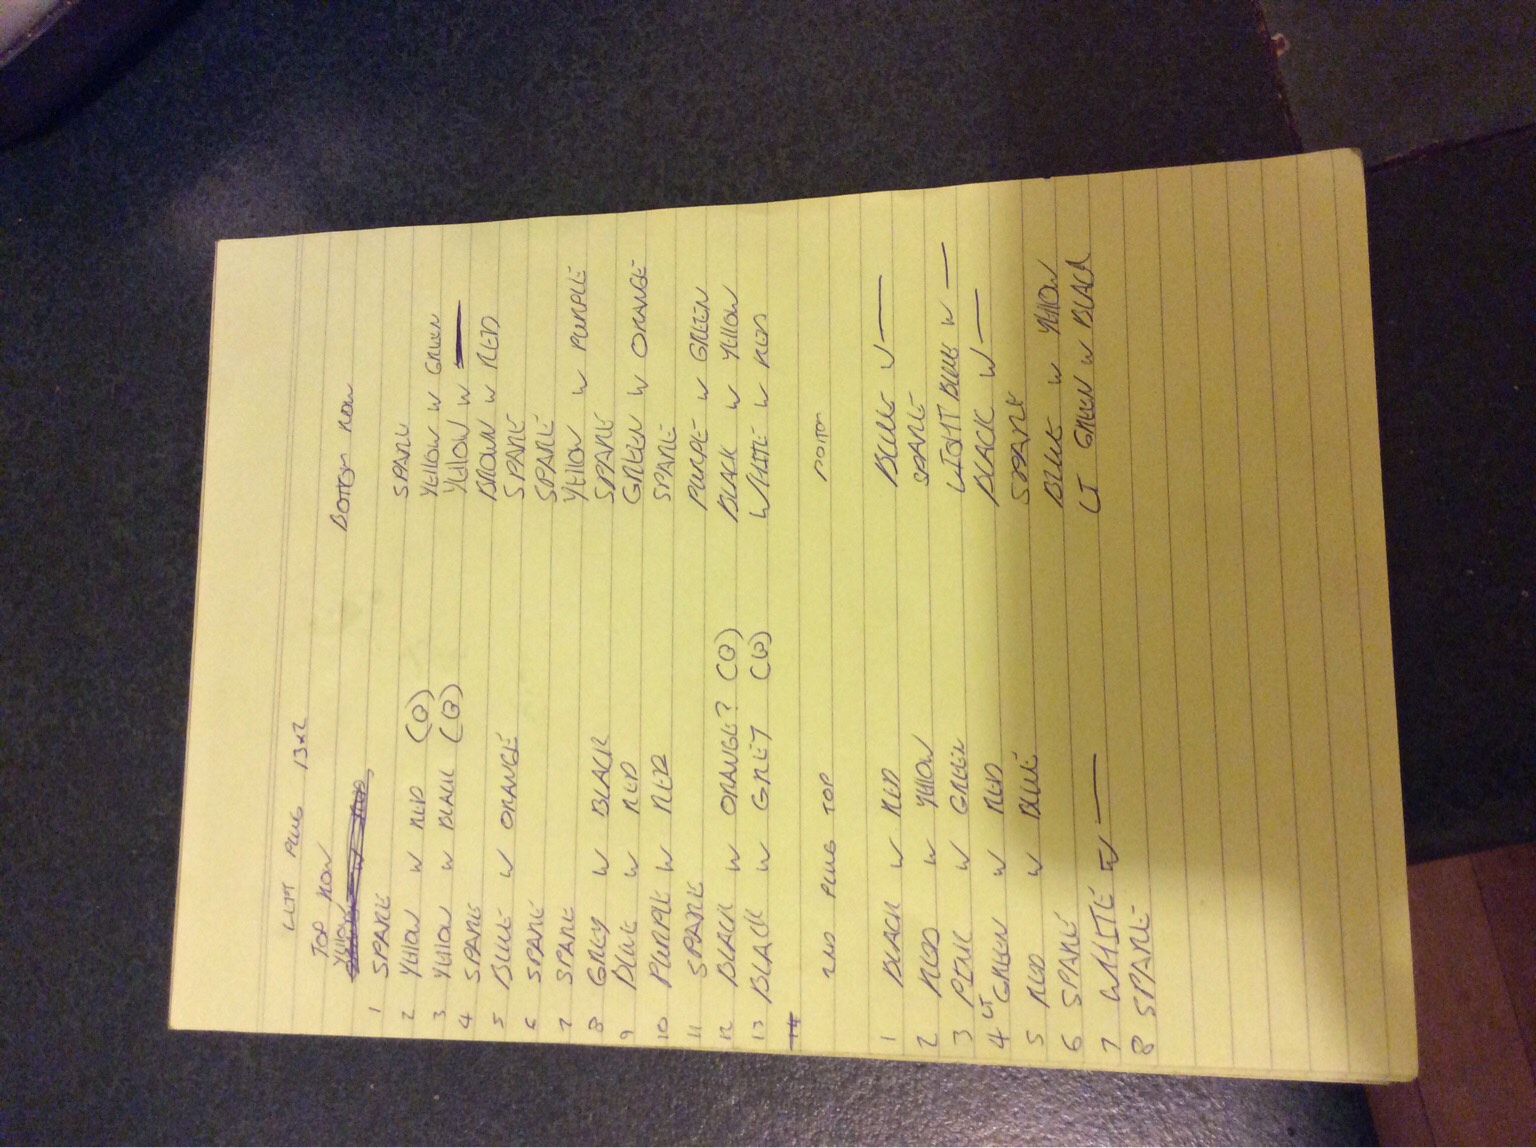 LEFT PLUG 13x2
TOP ROW BOTTOM ROW
YELLOW
1 SPARE SPARE
2 YELLOW W RED (B) YELLOW W GREEN
3 YELLOW W BLACK (B) YELLOW W —
4 SPARE BROWN W RED
5 BLUE W ORANGE SPARE
6 SPARE SPARE
7 SPARE YELLOW W PURPLE
8 GREY W BLACK SPARE
9 BLUE W RED GREEN W ORANGE
10 PURPLE W RED SPARE
11 SPARE PURPLE W GREEN
12 BLACK W ORANGE? (B) BLACK W YELLOW
13 BLACK W GREY (B) WHITE W RED
14
2ND PLUG TOP
1 BLACK W RED BLUE W —
2 RED W YELLOW SPARE
3 PINK W GREEN LIGHT BLUE W —
4 LT GREEN W RED BLACK W —
5 RED W BLUE SPARE
6 SPARE BLUE W YELLOW
7 WHITE W — LT GREEN W BLACK
8 SPARE